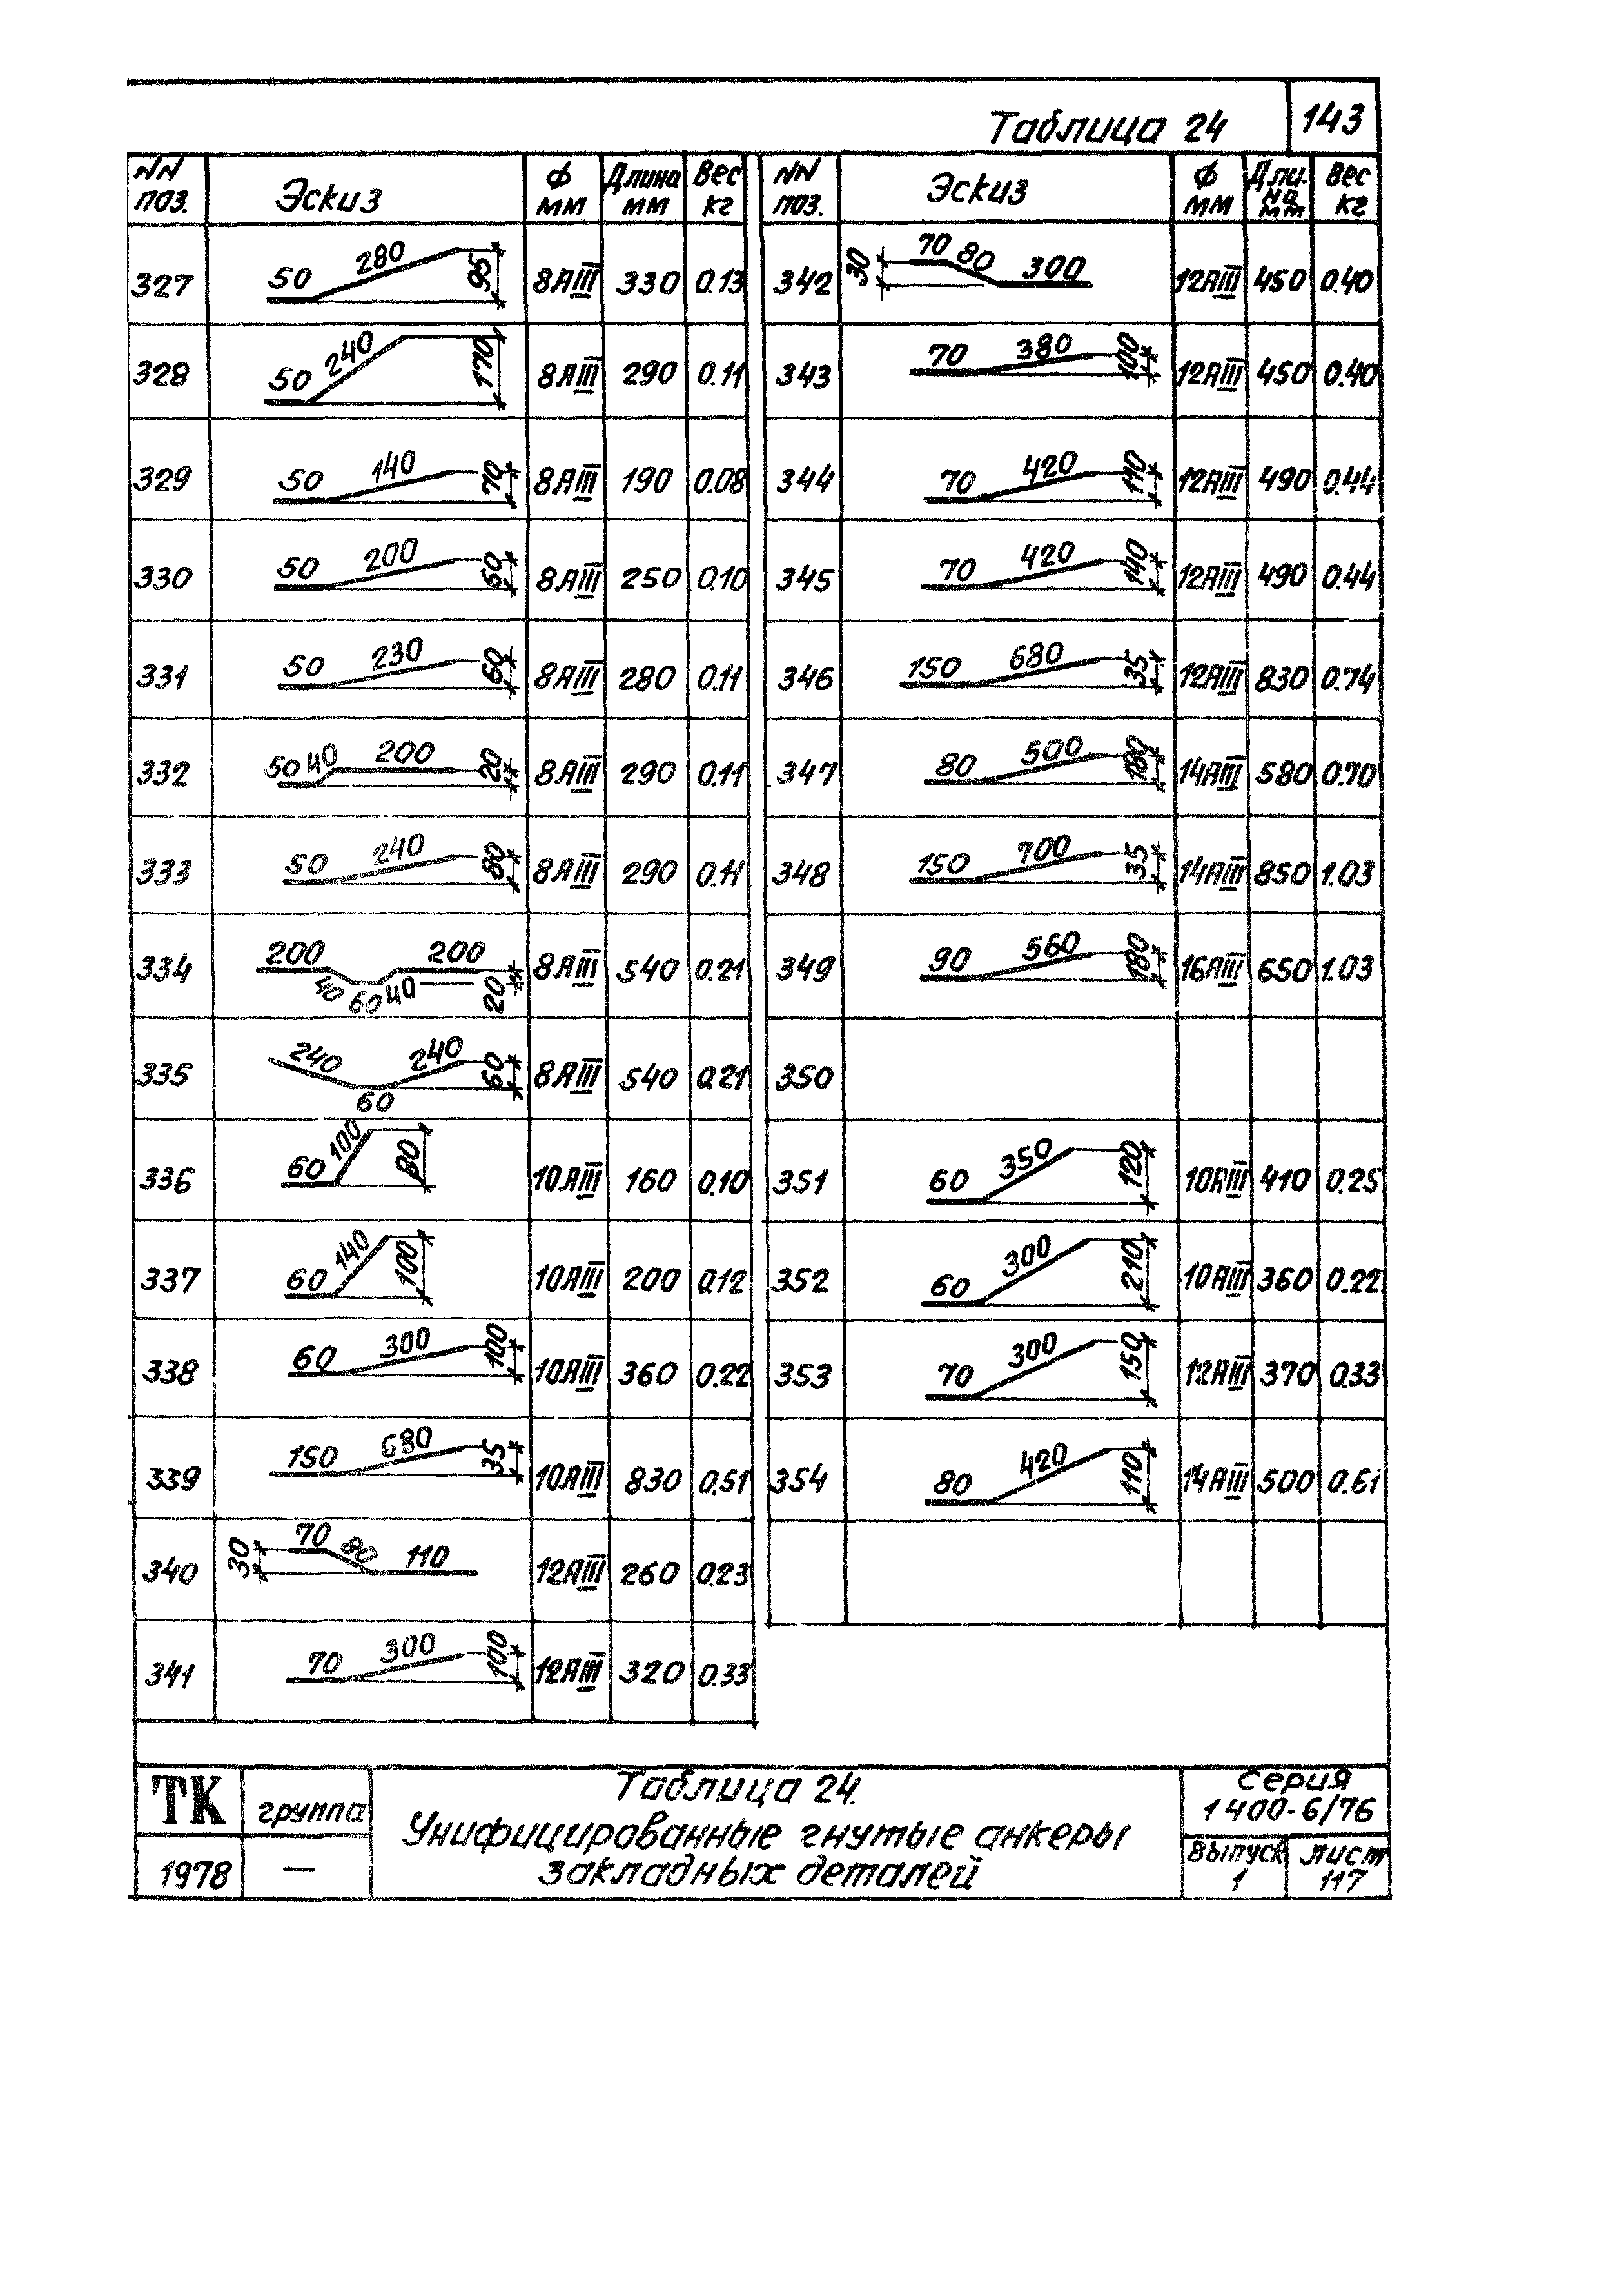 Таблица 24 143
NN поз. Эскиз Ф мм Длина мм Вес кг NN поз. Эскиз Ф мм Дли-на мм Вес кг
327 50 280 95 8АIII 330 0.13 342 30 70 80 300 12АIII 450 0.40
328 50 240 170 8АIII 290 0.11 343 70 380 100 12АIII 450 0.40
329 50 140 70 8АIII 190 0.08 344 70 420 110 12АIII 490 0.44
330 50 200 60 8АIII 250 0.10 345 70 420 140 12АIII 490 0.44
331 50 230 60 8АIII 280 0.11 346 150 680 35 12АIII 830 0.74
332 50 40 200 20 8АIII 290 0.11 347 80 500 180 14АIII 580 0.70
333 50 240 80 8АIII 290 0.11 348 150 700 35 14АIII 850 1.03
334 200 40 60 40 200 20 8АIII 540 0.21 349 90 560 180 16АIII 650 1.03
335 240 60 240 60 8АIII 540 0.21 350
336 60 100 80 10АIII 160 0.10 351 60 350 120 10АIII 410 0.25
337 60 140 100 10АIII 200 0.12 352 60 300 210 10АIII 360 0.22
338 60 300 100 10АIII 360 0.22 353 70 300 150 12АIII 370 0.33
339 150 680 35 10АIII 830 0.51 354 80 420 110 14АIII 500 0.61
340 30 70 80 110 12АIII 260 0.23
341 70 300 100 12АIII 320 0.33
ТК группа
1978 —
Таблица 24.
Унифицированные гнутые анкеры
закладных деталей
Серия
1 400-6/76
Выпуск 1 лист 117